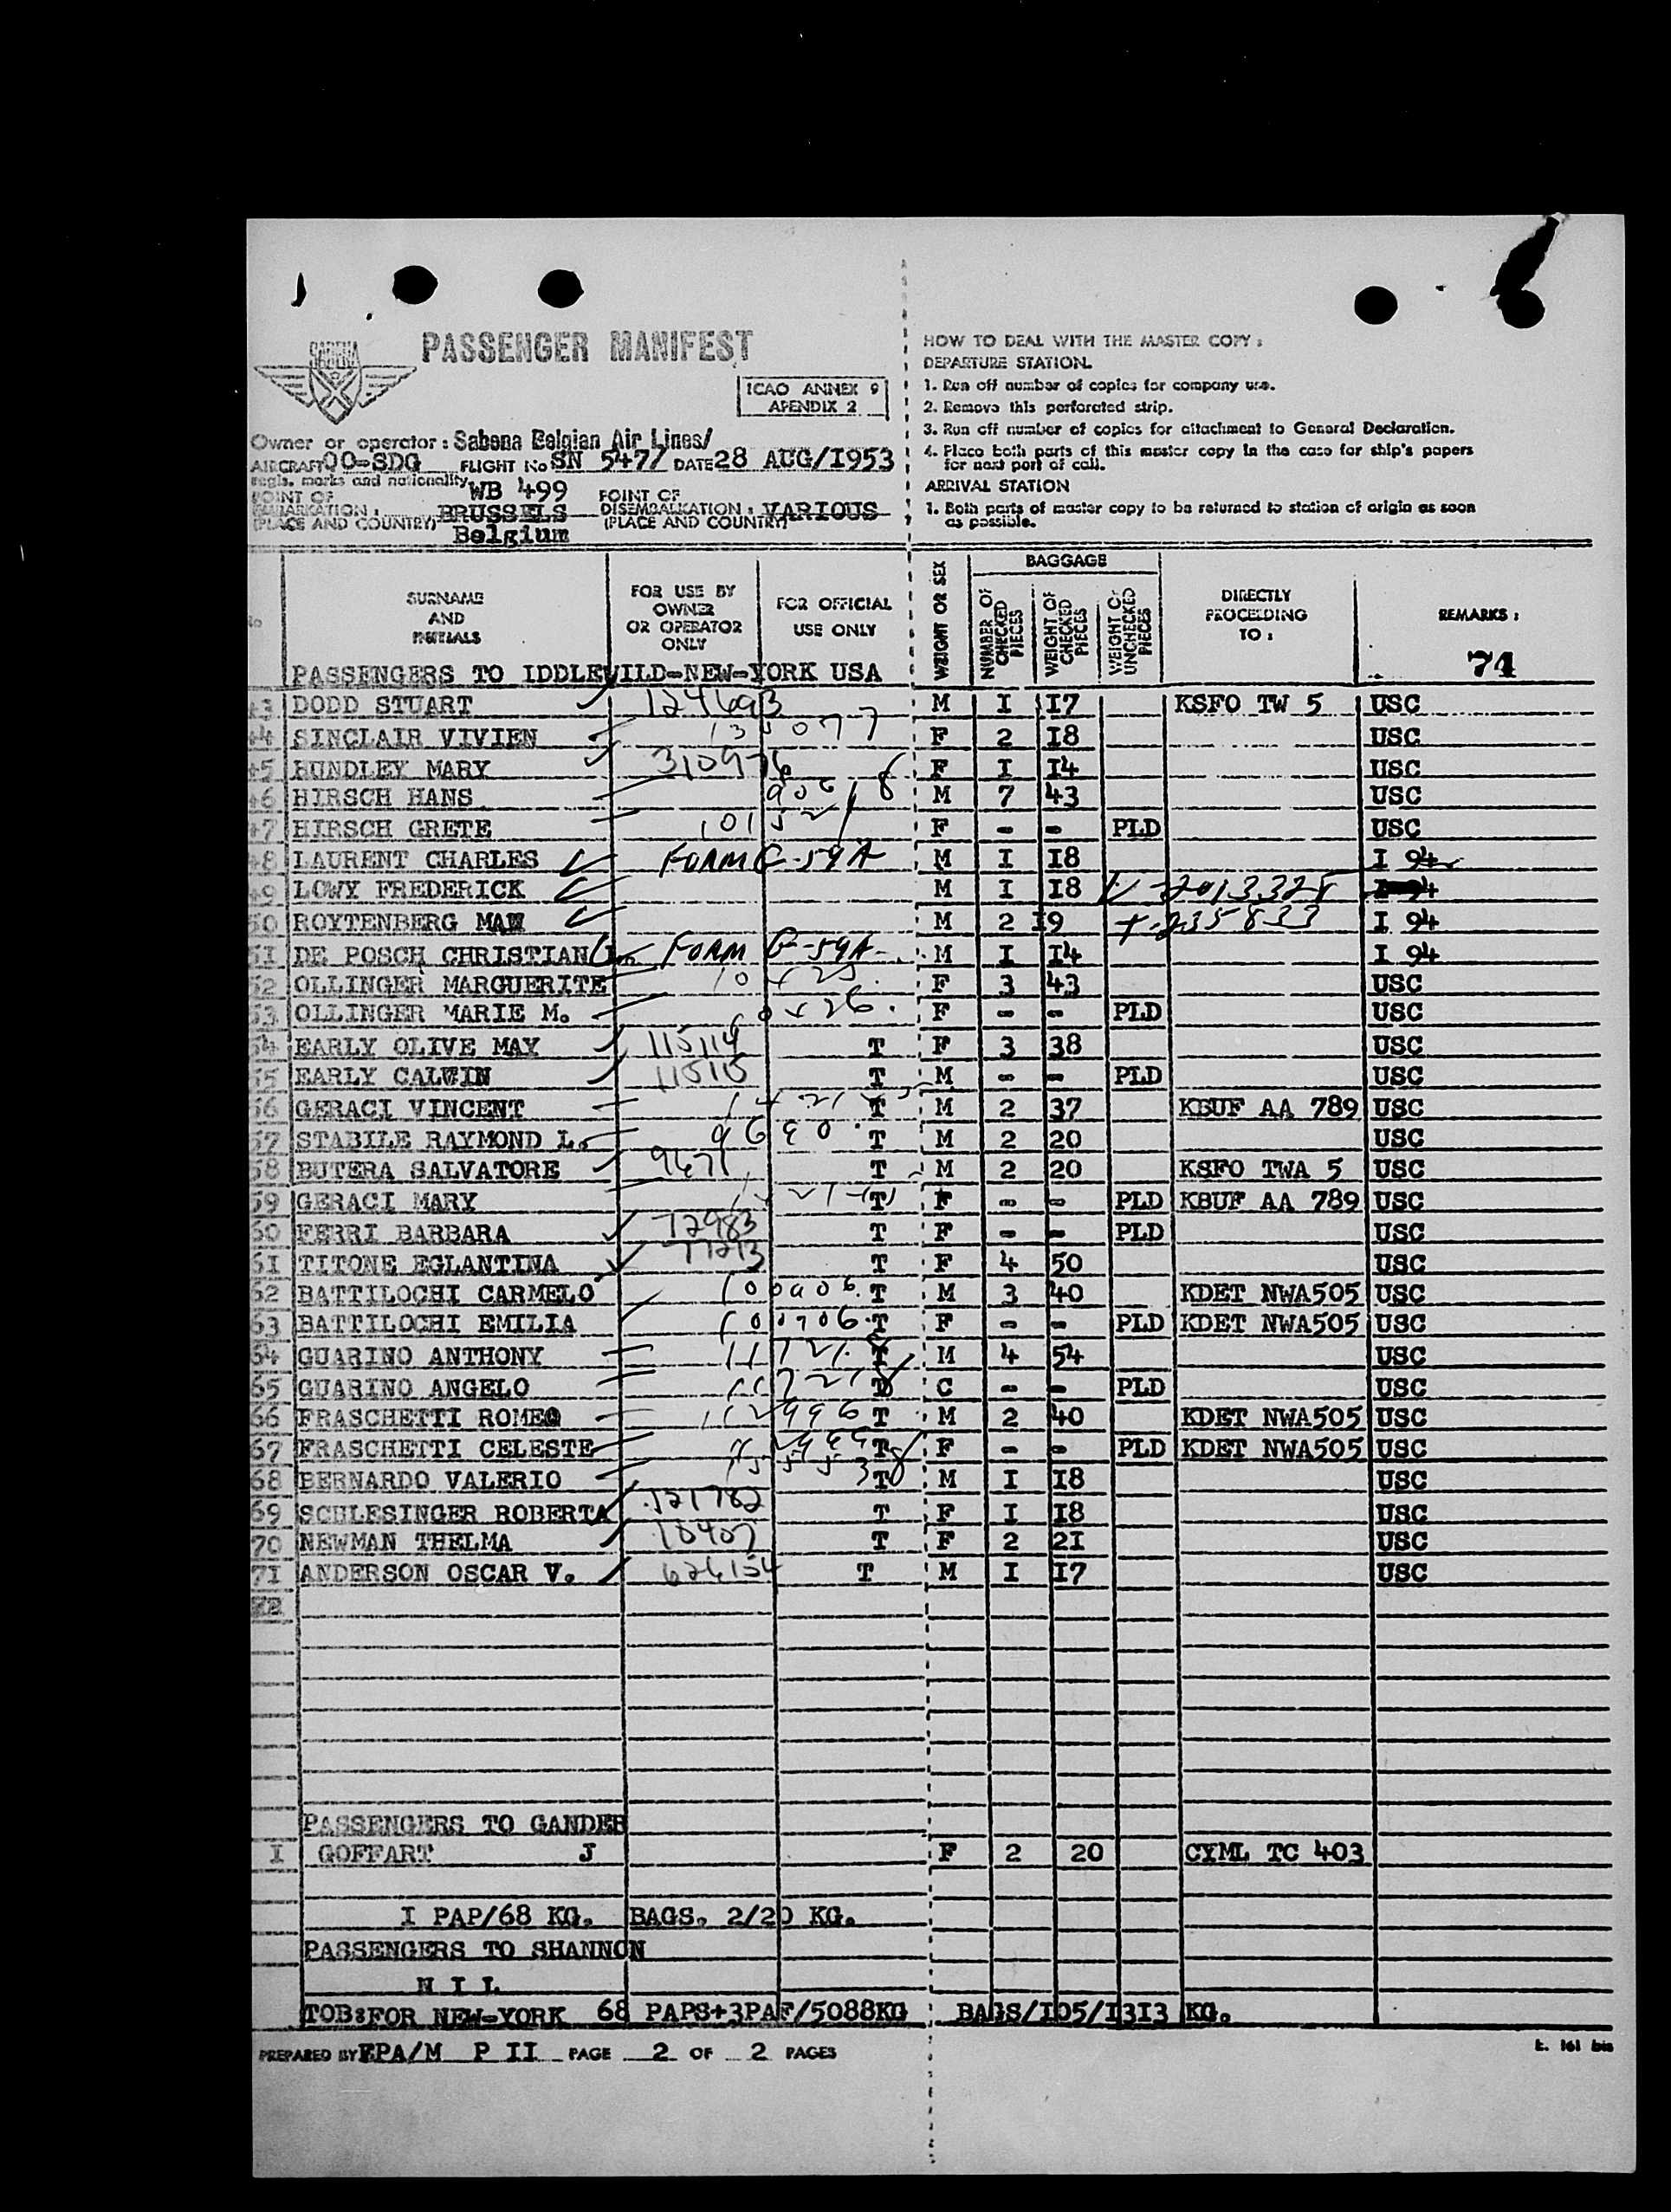 SABENA
PASSENGER MANIFEST
ICAO ANNEX 9
APENDIX 2
Owner or operator: Sabena Belgian Air Lines/
AIRCRAFT OO-SDG FLIGHT No SN 547/ DATE 28 AUG/I953
regis. marks and nationality WB 499
POINT OF EMBARKATION: BRUSSELS POINT OF DISEMBARKATION: VARIOUS
(PLACE AND COUNTRY) Belgium (PLACE AND COUNTRY)
HOW TO DEAL WITH THE MASTER COPY:
DEPARTURE STATION.
1. Run off number of copies for company use.
2. Remove this perforated strip.
3. Run off number of copies for attachment to General Declaration.
4. Place both parts of this master copy in the case for ship's papers
for next port of call.
ARRIVAL STATION
1. Both parts of master copy to be returned to station of origin as soon
as possible.
No SURNAME AND INITIALS FOR USE BY OWNER OR OPERATOR ONLY FOR OFFICIAL USE ONLY WEIGHT OR SEX BAGGAGE NUMBER OF CHECKED PIECES WEIGHT OF CHECKED PIECES WEIGHT OF UNCHECKED PIECES DIRECTLY PROCEEDING TO: REMARKS:
PASSENGERS TO IDDLEWILD-NEW-YORK USA 74
43 DODD STUART 124693 M I I7 KSFO TW 5 USC
44 SINCLAIR VIVIEN 135077 F 2 I8 USC
45 HUNDLEY MARY 310976 F I I4 USC
46 HIRSCH HANS M 7 43 USC
47 HIRSCH GRETE F - - PLD USC
48 LAURENT CHARLES FORM G-59A M I I8 I 94
49 LOWY FREDERICK M I I8
50 ROYTENBERG MAX M 2 I9 I 94
51 DE POSCH CHRISTIAN FORM G-59A M I I4 I 94
52 OLLINGER MARGUERITE F 3 43 USC
53 OLLINGER MARIE M. F - - PLD USC
54 EARLY OLIVE MAY 115114 T F 3 38 USC
55 EARLY CALVIN 115115 T M - - PLD USC
56 GERACI VINCENT T M 2 37 KBUF AA 789 USC
57 STABILE RAYMOND L. 9690 T M 2 20 USC
58 BUTERA SALVATORE 9471 T M 2 20 KSFO TWA 5 USC
59 GERACI MARY T F - - PLD KBUF AA 789 USC
60 FERRI BARBARA 72983 T F - - PLD USC
61 TITONE EGLANTINA 77213 T F 4 50 USC
62 BATTILOCHI CARMELO T M 3 40 KDET NWA505 USC
63 BATTILOCHI EMILIA T F - - PLD KDET NWA505 USC
64 GUARINO ANTHONY T M 4 54 USC
65 GUARINO ANGELO T C - - PLD USC
66 FRASCHETTI ROMEO T M 2 40 KDET NWA505 USC
67 FRASCHETTI CELESTE T F - - PLD KDET NWA505 USC
68 BERNARDO VALERIO T M I I8 USC
69 SCHLESINGER ROBERTA 121782 T F I I8 USC
70 NEWMAN THELMA 10407 T F 2 2I USC
7I ANDERSON OSCAR V. 626154 T M I I7 USC
PASSENGERS TO GANDER
I GOFFART J F 2 20 CYML TC 403
I PAP/68 KG. BAGS. 2/20 KG.
PASSENGERS TO SHANNON
N I L
TOB:FOR NEW-YORK 68 PAPS+3PAF/5088KG BAGS/I05/I3I3 KG.
PREPARED BY EPA/M P II PAGE 2 OF 2 PAGES
E. 161 bis